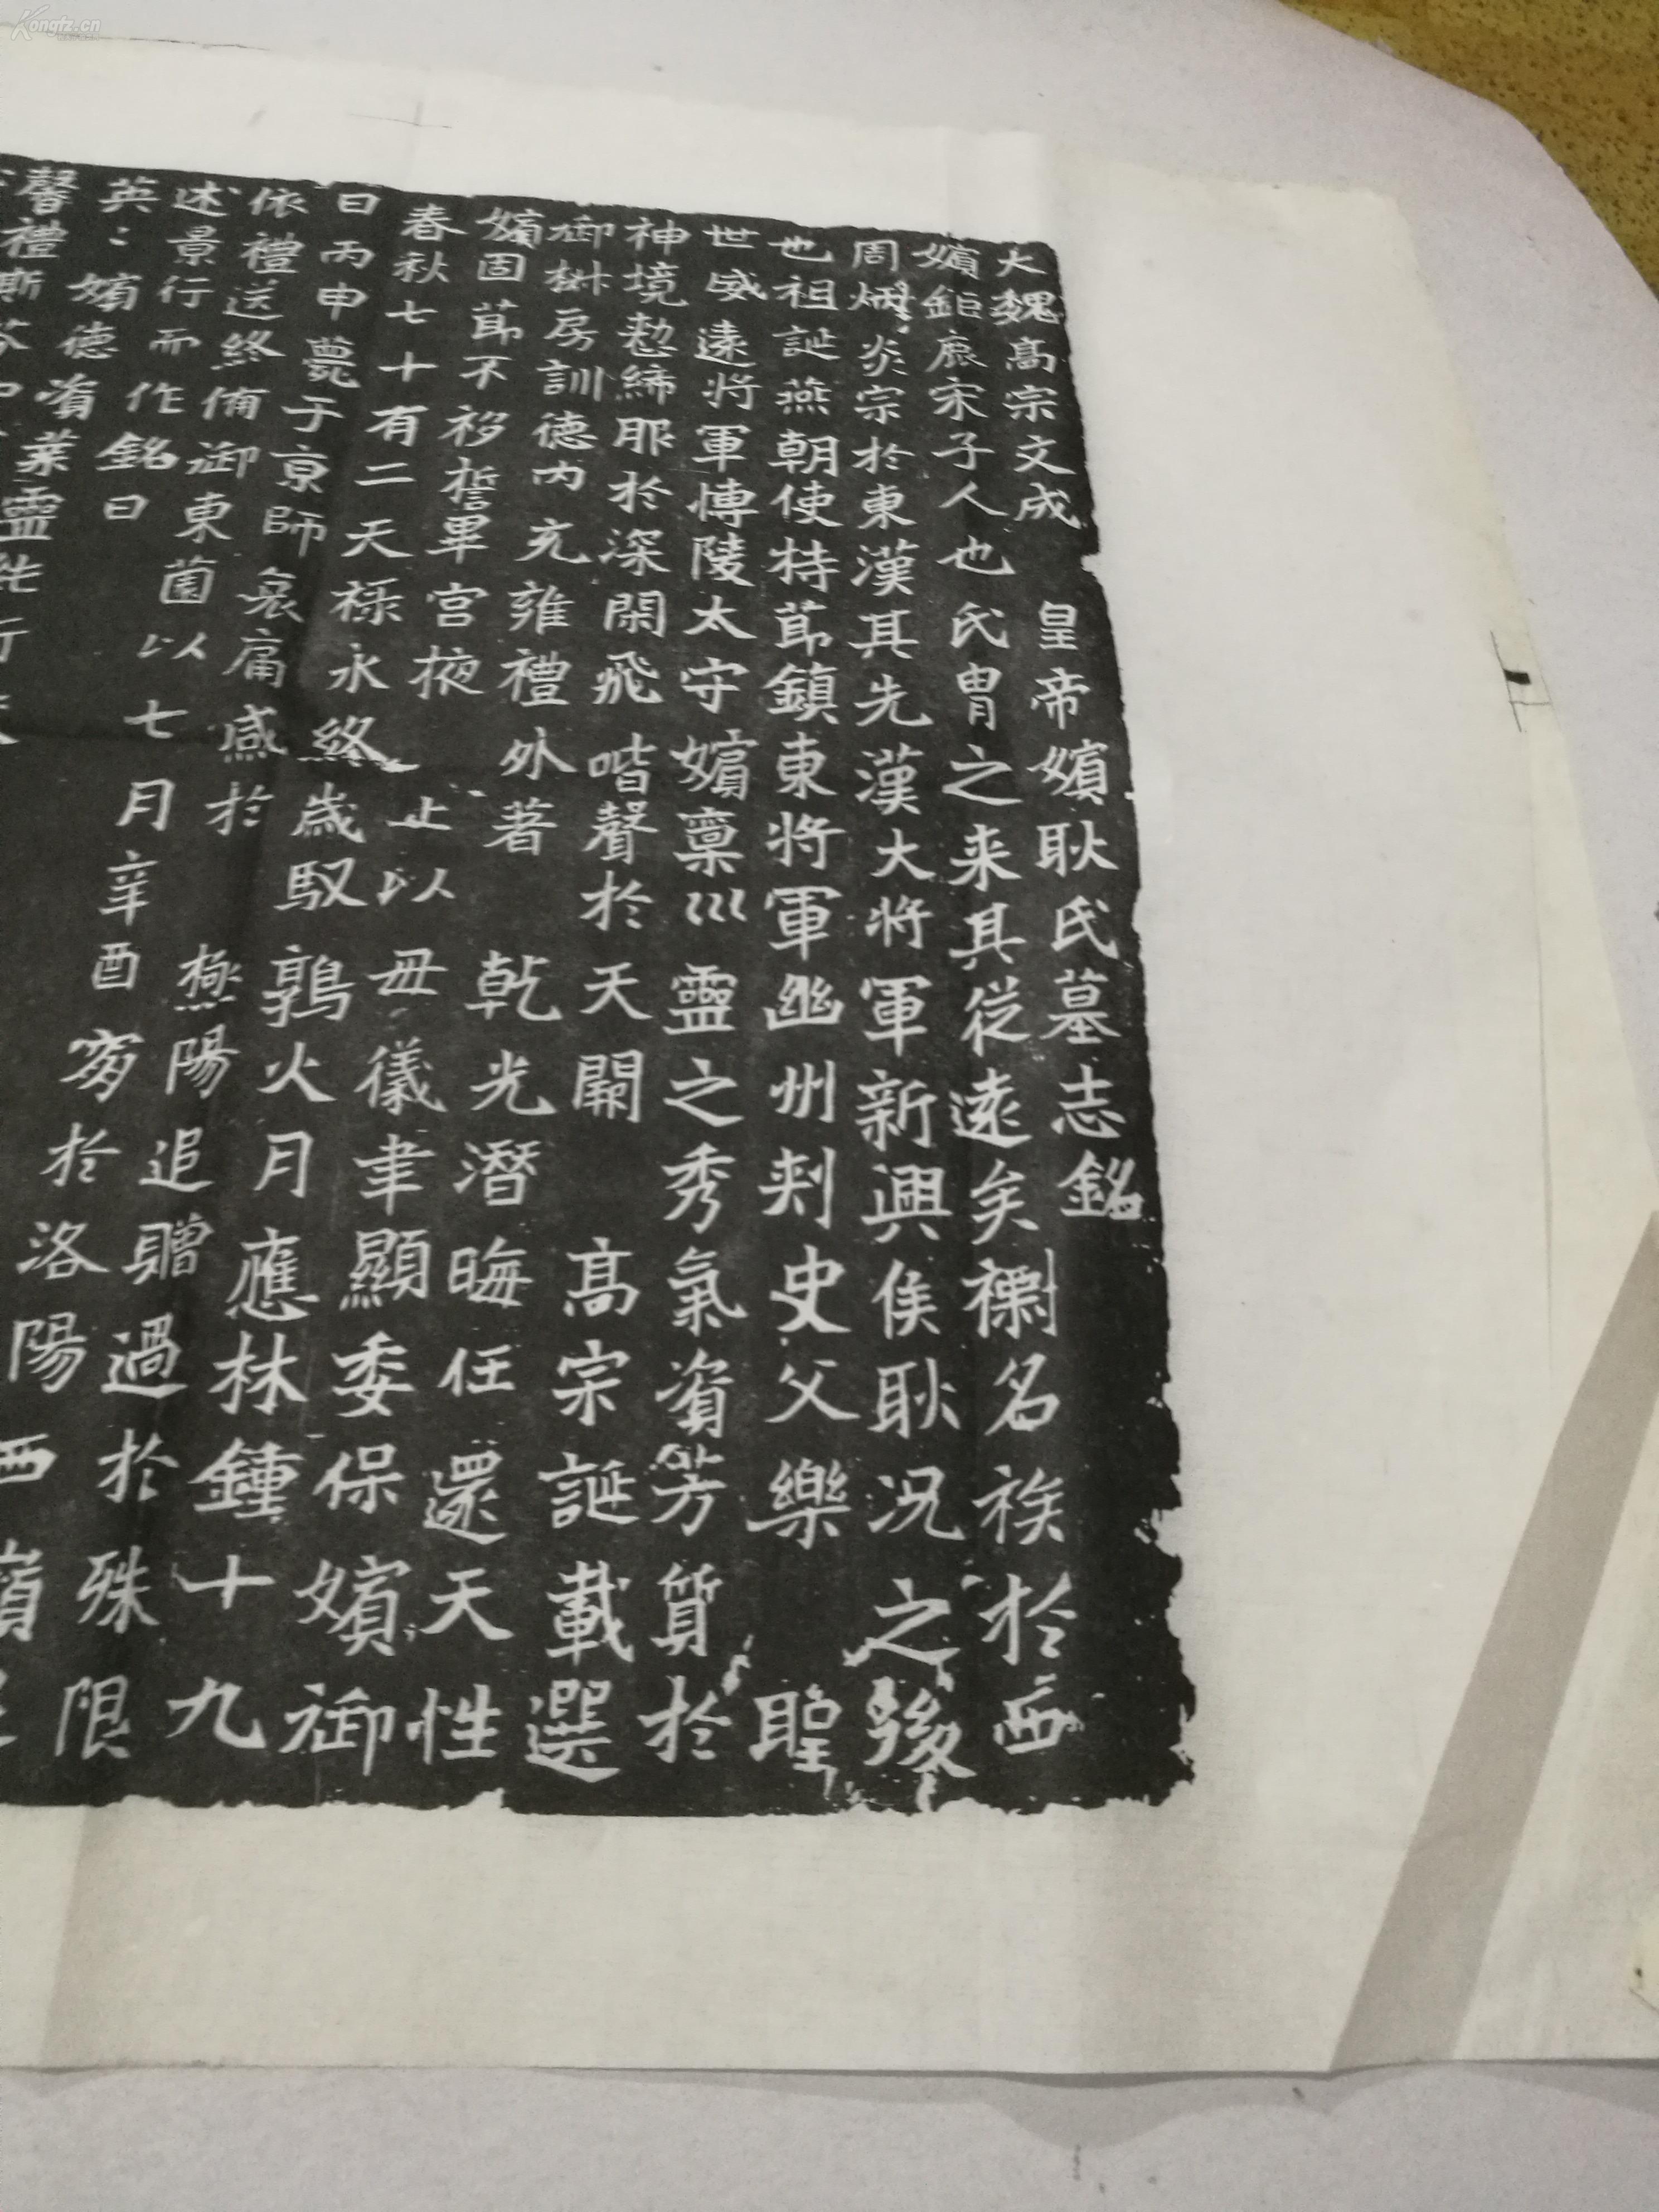 大魏高宗文成 皇帝嬪耿氏墓志銘
嬪鉅鹿宋子人也氏胄之来其従遠矣 名族於西
周炳炎宗於東漢其先漢大将軍新興侯耿况之後
也祖誕燕朝使持節鎮東将軍幽州刺史父樂 聖
世威遠将軍博陵太守嬪稟巛靈之秀氣資芳質於
神境懃締服於深閑飛喈聲於天閞 高宗誕載選
御椒房訓德内充雍禮外著 乾光潛晦任還天性
嬪固節不移誓畢宮掖 上以毋儀聿顯委保嬪御
春秋七十有二天禄永終歲馭鶉火月應林鍾十九
日丙申薨于京師哀痛慼於 極陽追贈過於殊限
依禮送終備御東薗以七月辛酉窆於洛陽西嶺
述景行而作銘曰
英：嬪德資業靈
馨禮斯芬
Kongfz.cn